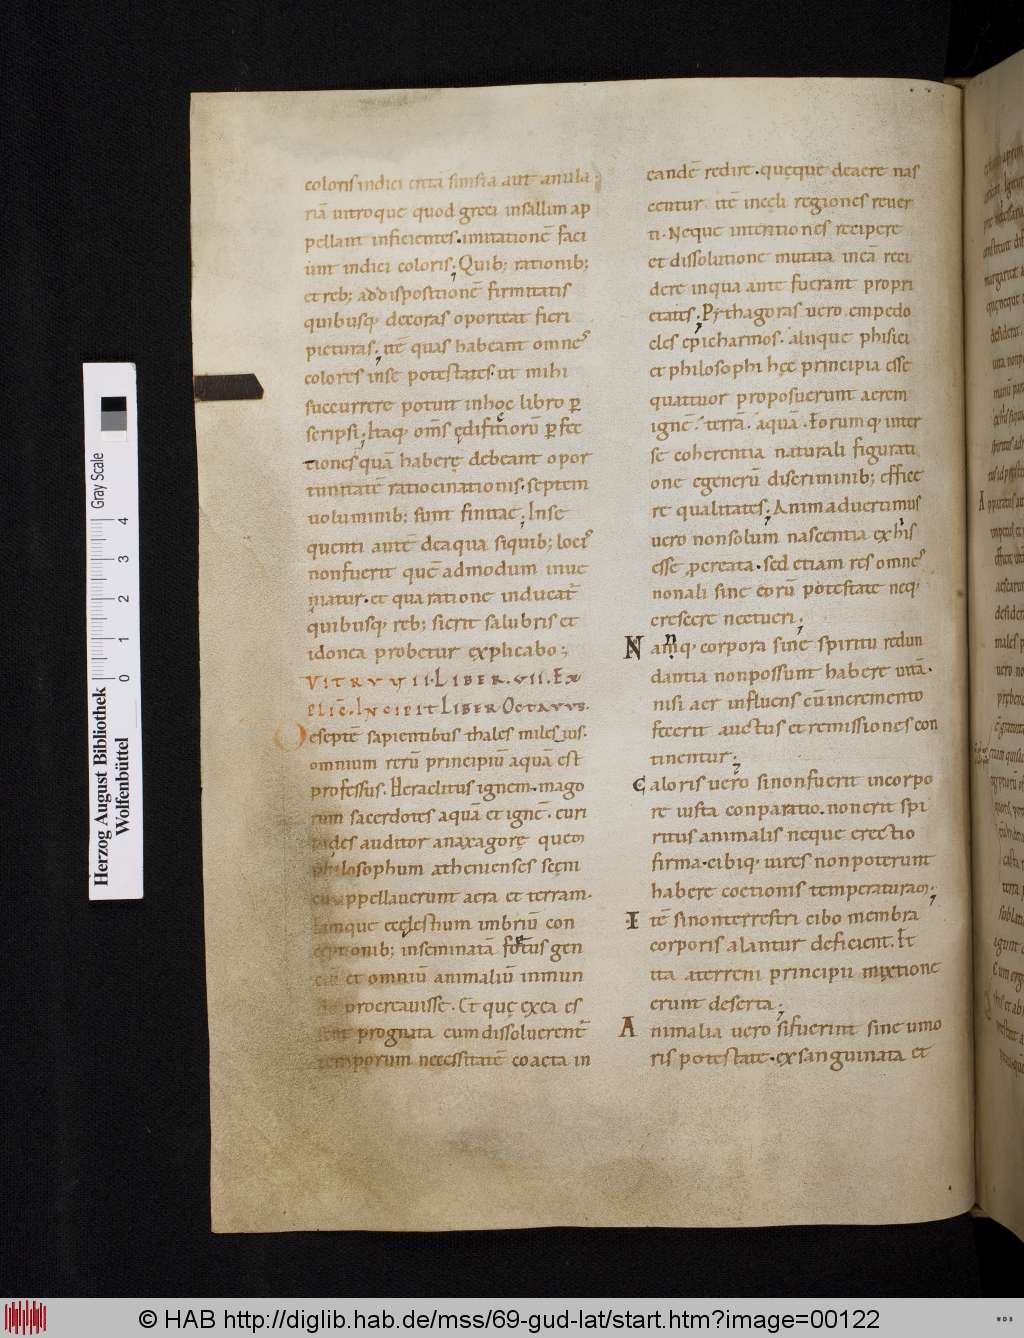 coloris indici creta sinsia aut anula
riā uitroque quod greci insallim ap
pellant inficientes. imitationē faci
unt indici coloris; Quib; rationib;
et reb; ad dispositionē firmitatis
quibusq; decoras oporteat fieri
picturas; itē quas habeant omnes
colores inse potestates. ut mihi
succurrere potuit in hoc libro p̄
scripsi; Itaq; om̄s ędifitiorū p̄fec
tiones quā haberę debeant opor
tunitatē ratiocinationis. septem
uoluminib; sunt finitae; Inse
quenti autē de aqua siquib; locis
non fuerit quē admodum inue
niatur. et qua ratione inducat̄
quibusq; reb; si erit salubris et
idonea probetur explicabo;
VITRVVII. LIBER. VII. EX
PLIC̄. INCIPIT LIBER OCTAVVS.
De septē sapientibus thales milesius.
omnium rerū principiū aquā est
professus. Heraclitus ignem. mago
rum sacerdotes aquā et ignē. euri
pides auditor anaxagorę quem
philosophum athenienses scęni
cū appellauerunt aera et terram.
eamque cęlestium imbriū con
ceptionib; inseminatā foetus gen
tiū et omniū animaliū in mun
do procreauisse. Et quę ex ea es
sent prognata cum dissoluerent̄
temporum necessitatē coacta in
eandē redire. quęque de aere nas
centur itē in cęli regiones reuer
ti. Neque interitiones recipere
et dissolutione mutata in eā reci
dere in qua ante fuerant propri
etates; Pythagoras uero. empedo
cles epicharmos. aliique phisici
et philosophi hęc principia esse
quattuor proposuerunt aerem
ignē. terrā. aquā. Eorumq; inter
se coherentia naturali figurati
one e generū discriminib; effice
re qualitates; Animaduertimus
uero non solum nascentia ex his
esse procreata. sed etiam res omnes
non ali sine eorū potestate neq;
crescere nec tueri;
Namq; corpora sine spiritu redun
dantia non possunt habere uitā.
nisi aer influens cū incremento
fecerit auctus et remissiones con
tinentur;
Caloris uero si non fuerit in corpo
re iusta conparatio. non erit spi
ritus animalis neque erectio
firma. cibiq; uires non poterunt
habere coctionis temperaturam;
Itē si non terrestri cibo membra
corporis alantur deficient. Et
ita a terreni principii mixtione
erunt deserta;
Animalia uero si fuerint sine umo
ris potestate. exsanguinata et
Herzog August Bibliothek
Wolfenbüttel
Gray Scale
0 1 2 3 4
© HAB http://diglib.hab.de/mss/69-gud-lat/start.htm?image=00122